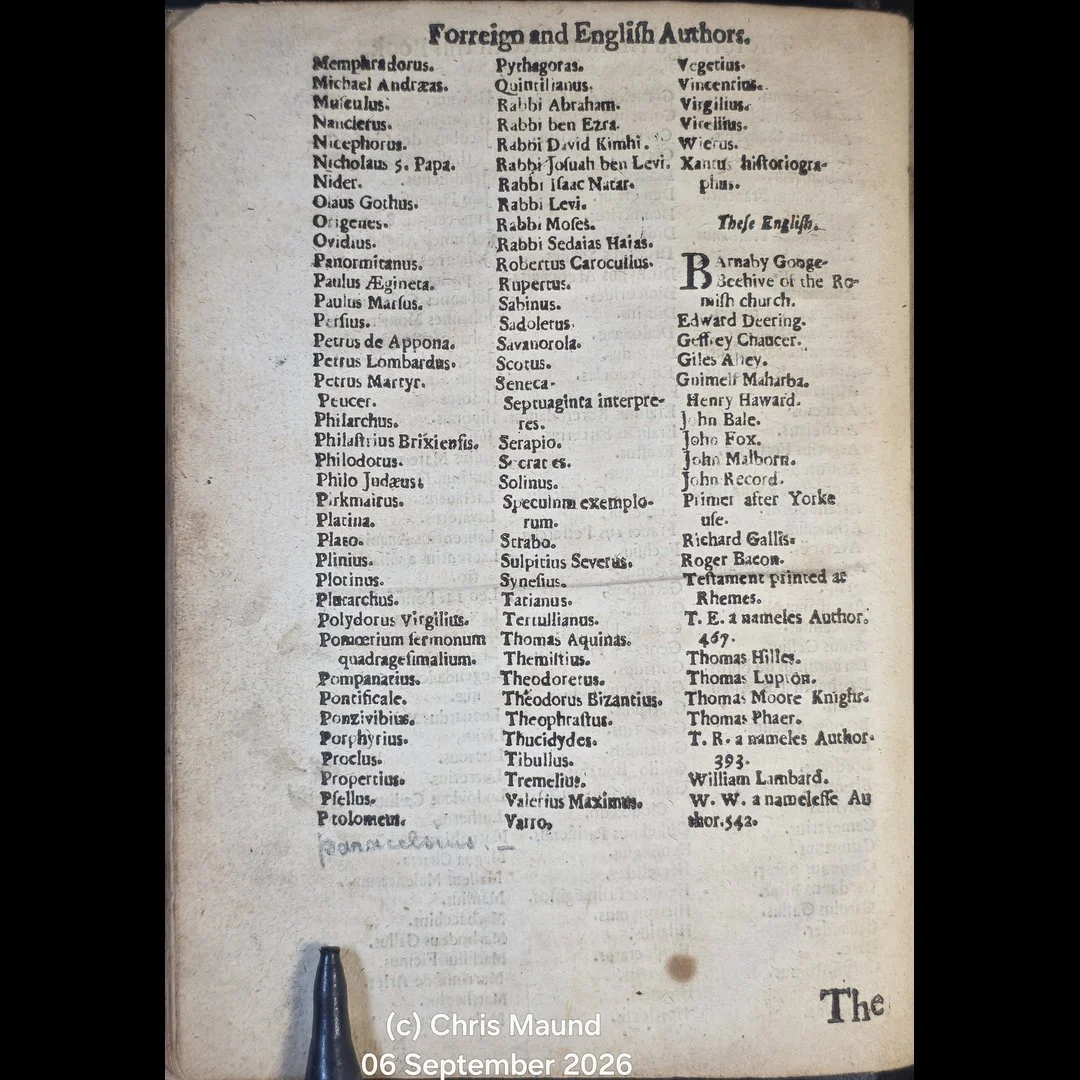 Forreign and Engliſh Authors.
Memphradorus.
Michael Andræas.
Muſculus.
Nauclerus.
Nicephorus.
Nicholaus 5. Papa.
Nider.
Olaus Gothus.
Origenes.
Ovidius.
Panormitanus.
Paulus Ægineta.
Paulus Marſus.
Perſius.
Petrus de Appona.
Petrus Lombardus.
Petrus Martyr.
Peucer.
Philarchus.
Philaſtrius Brixienſis.
Philodotus.
Philo Judæus.
Pirkmairus.
Platina.
Plato.
Plinius.
Plotinus.
Plutarchus.
Polydorus Virgilius.
Pomœrium ſermonum
quadrageſimalium.
Pompanatius.
Pontificale.
Ponzivibius.
Porphyrius.
Proclus.
Propertius.
Pſellus.
Ptolomeus.
Pythagoras.
Quintilianus.
Rabbi Abraham.
Rabbi ben Ezra.
Rabbi David Kimhi.
Rabbi Joſuah ben Levi.
Rabbi iſaac Natar.
Rabbi Levi.
Rabbi Moſes.
Rabbi Sedaias Haias.
Robertus Carocullus.
Rupertus.
Sabinus.
Sadoletus.
Savanorola.
Scotus.
Seneca.
Septuaginta interpre-
tes.
Serapio.
Socrates.
Solinus.
Speculum exemplo-
rum.
Strabo.
Sulpitius Severus.
Syneſius.
Tatianus.
Tertullianus.
Thomas Aquinas.
Themiſtius.
Theodoretus.
Theodorus Bizantius.
Theophraſtus.
Thucidydes.
Tibullus.
Tremelius.
Valerius Maximus.
Varro.
Vegetius.
Vincentius.
Virgilius.
Vitellius.
Wierus.
Xantus hiſtoriogra-
phus.
Theſe Engliſh.
BArnaby Googe.
Beehive of the Ro-
miſh church.
Edward Deering.
Geffrey Chaucer.
Giles Alley.
Gnimelf Maharba.
Henry Haward.
John Bale.
John Fox.
John Malborn.
John Record.
Primer after Yorke
uſe.
Richard Gallis.
Roger Bacon.
Teſtament printed at
Rhemes.
T. E. a nameles Author.
467.
Thomas Hilles.
Thomas Lupton.
Thomas Moore Knight.
Thomas Phaer.
T. R. a nameles Author.
393.
William Lambard.
W. W. a nameleſſe Au
thor.542.
The
(c) Chris Maund
06 September 2026